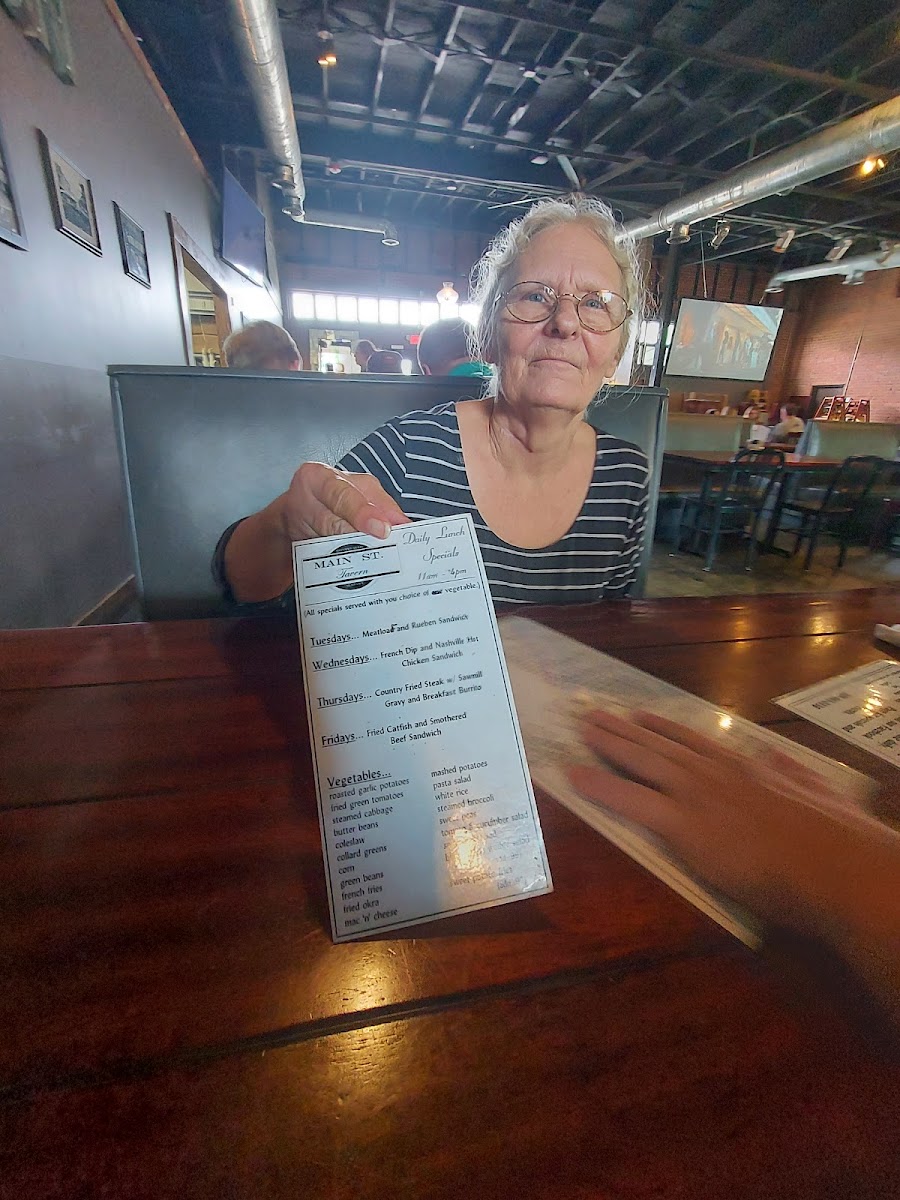 MAIN ST.
Tavern
Daily Lunch
Specials
11am - 4pm
(All specials served with you choice of vegetable.)
Tuesdays... Meatloaf and Rueben Sandwich
Wednesdays... French Dip and Nashville Hot
Chicken Sandwich
Thursdays... Country Fried Steak w/ Sawmill
Gravy and Breakfast Burrito
Fridays... Fried Catfish and Smothered
Beef Sandwich
Vegetables...
roasted garlic potatoes
fried green tomatoes
steamed cabbage
butter beans
coleslaw
collard greens
corn
green beans
french fries
fried okra
mac 'n' cheese
mashed potatoes
pasta salad
white rice
steamed broccoli
sweet peas
cucumber salad
sweet potato fries